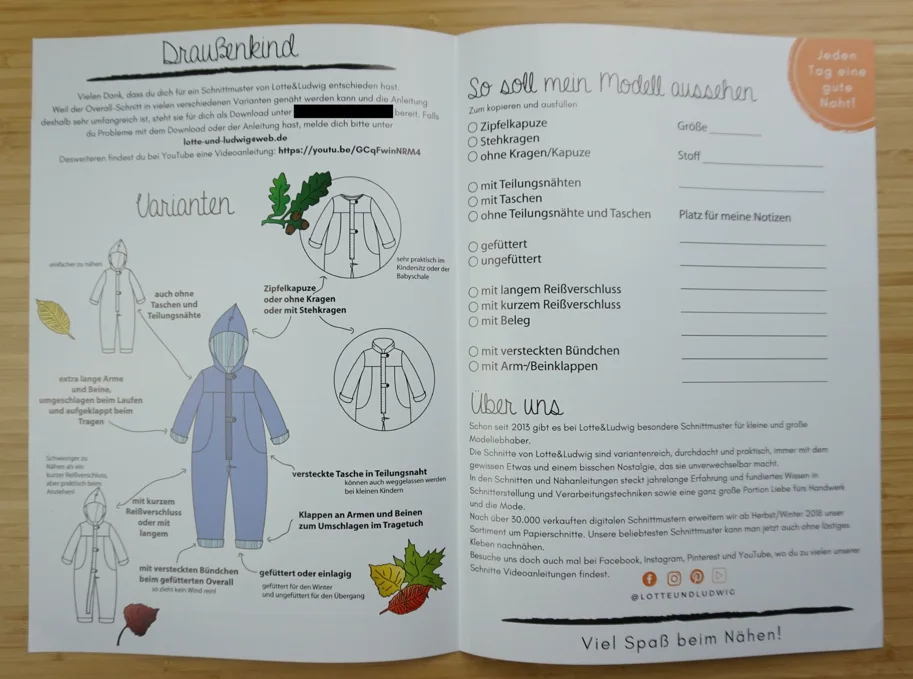 Draußenkind
Vielen Dank, dass du dich für ein Schnittmuster von Lotte&Ludwig entschieden hast.
Weil der Overall-Schnitt in vielen verschiedenen Varianten genäht werden kann und die Anleitung
deshalb sehr umfangreich ist, steht sie für dich als Download unter bereit. Falls
du Probleme mit dem Download oder der Anleitung hast, melde dich bitte unter
lotte-und-ludwig@web.de
Desweiteren findest du bei YouTube eine Videoanleitung: https://youtu.be/GCqFwinNRM4
Varianten
einfacher zu nähen
auch ohne
Taschen und
Teilungsnähte
Zipfelkapuze
oder ohne Kragen
oder mit Stehkragen
sehr praktisch im
Kindersitz oder der
Babyschale
extra lange Arme
und Beine,
umgeschlagen beim Laufen
und aufgeklappt beim
Tragen
Schwieriger zu
Nähen als ein
kurzer Reißverschluss,
aber praktisch beim
Anziehen!
mit kurzem
Reißverschluss
oder mit
langem
versteckte Tasche in Teilungsnaht
können auch weggelassen werden
bei kleinen Kindern
Klappen an Armen und Beinen
zum Umschlagen im Tragetuch
mit versteckten Bündchen
beim gefütterten Overall
so zieht kein Wind rein!
gefüttert oder einlagig
gefüttert für den Winter
und ungefüttert für den Übergang
Jeden
Tag eine
gute
Naht!
So soll mein Modell aussehen
Zum kopieren und ausfüllen
Zipfelkapuze
Stehkragen
ohne Kragen/Kapuze
mit Teilungsnähten
mit Taschen
ohne Teilungsnähte und Taschen
gefüttert
ungefüttert
mit langem Reißverschluss
mit kurzem Reißverschluss
mit Beleg
mit versteckten Bündchen
mit Arm-/Beinklappen
Größe
Stoff
Platz für meine Notizen
Über uns
Schon seit 2013 gibt es bei Lotte&Ludwig besondere Schnittmuster für kleine und große
Modeliebhaber.
Die Schnitte von Lotte&Ludwig sind variantenreich, durchdacht und praktisch, immer mit dem
gewissen Etwas und einem bisschen Nostalgie, das sie unverwechselbar macht.
In den Schnitten und Nähanleitungen steckt jahrelange Erfahrung und fundiertes Wissen in
Schnitterstellung und Verarbeitungstechniken sowie eine ganz große Portion Liebe fürs Handwerk
und die Mode.
Nach über 30.000 verkauften digitalen Schnittmustern erweitern wir ab Herbst/Winter 2018 unser
Sortiment um Papierschnitte. Unsere beliebtesten Schnittmuster kann man jetzt auch ohne lästiges
Kleben nachnähen.
Besuche uns doch auch mal bei Facebook, Instagram, Pinterest und YouTube, wo du zu vielen unserer
Schnitte Videoanleitungen findest.
@LOTTEUNDLUDWIG
Viel Spaß beim Nähen!